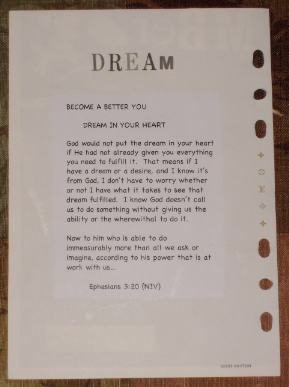 DREAM
BECOME A BETTER YOU
DREAM IN YOUR HEART
God would not put the dream in your heart
if He had not already given you everything
you need to fulfill it. That means if I
have a dream or a desire, and I know it's
from God, I don't have to worry whether
or not I have what it takes to see that
dream fulfilled. I know God doesn't call
us to do something without giving us the
ability or the wherewithal to do it.
Now to him who is able to do
immeasurably more than all we ask or
imagine, according to his power that is at
work with us...
Ephesians 3:20 (NIV)